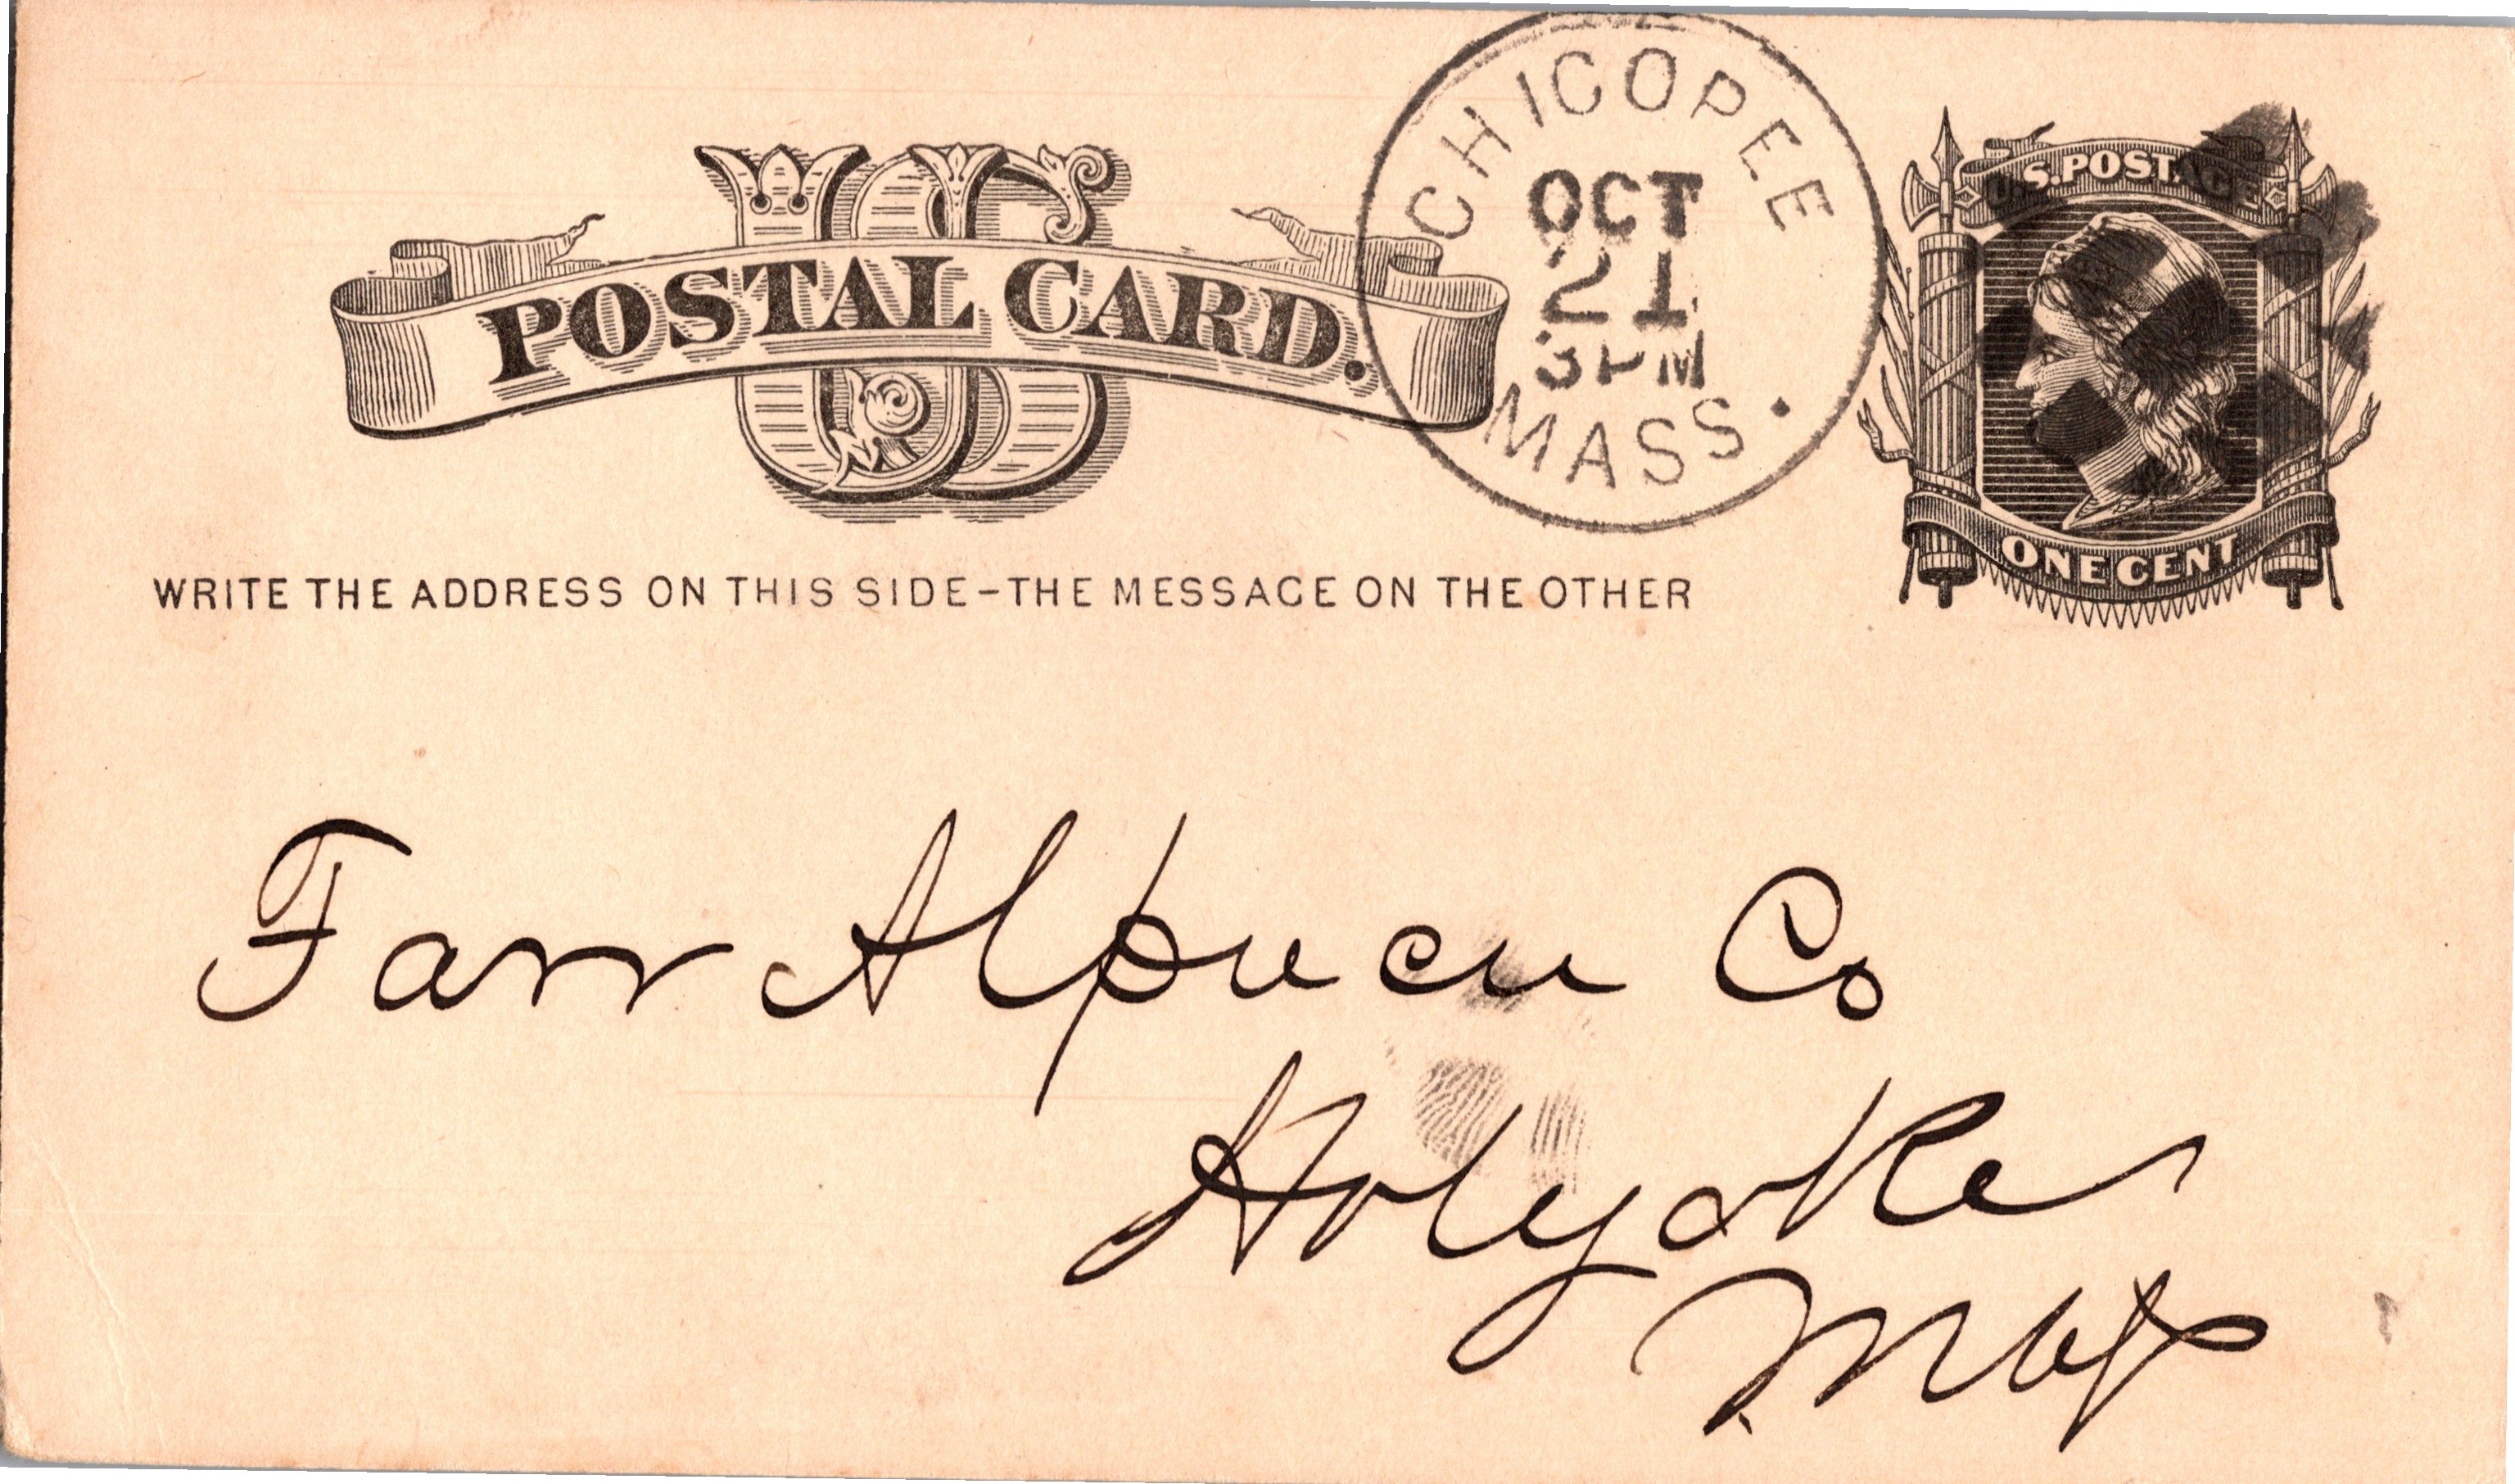 US
POSTAL CARD.
CHICOPEE
OCT
21
3 PM
MASS.
U.S. POSTAGE
ONE CENT
WRITE THE ADDRESS ON THIS SIDE-THE MESSAGE ON THE OTHER
Farr Alpaca Co
Holyoke
Mass